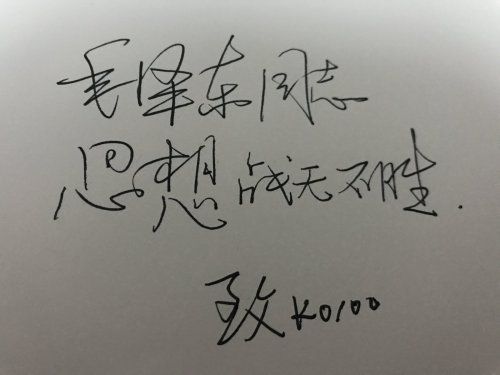 毛泽东同志
思想战无不胜.
致K0100